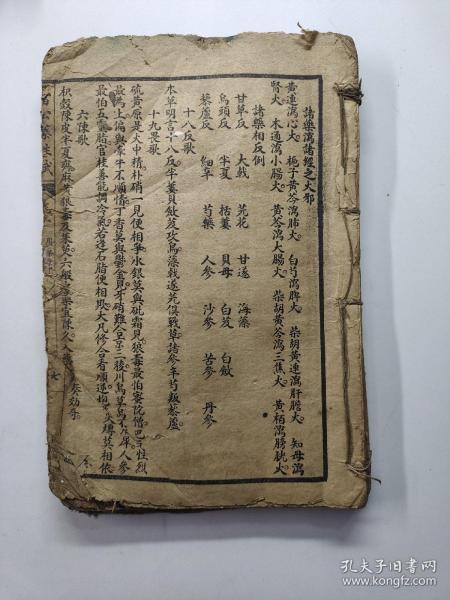 諸藥瀉諸經之火邪
黃連瀉心火。梔子黃芩瀉肺火。白芍瀉脾火。柴胡黃連瀉肝膽火。知母瀉
腎火。木通瀉小腸火。黃芩瀉大腸火。柴胡黃芩瀉三焦火。黃栢瀉膀胱火
諸藥相反例
甘草反 大戟 芫花 甘遂 海藻
烏頭反 半夏 括蔞 貝母 白芨 白斂
藜蘆反 細辛 芍藥 人參 沙參 苦參 丹參
十八反歌
本草明言十八反半蔞貝斂芨攻烏藻戟遂芫俱戰草諸參辛芍叛藜蘆
十九畏歌
硫黃原是火中精朴硝一見便相爭水銀莫與砒霜見狼毒最怕密陀僧巴豆性烈
最為上偏與牽牛不順情丁香莫與鬱金見牙硝難合京三稜川烏草烏不順犀人參
最怕五靈脂官桂善能調冷氣若逢石脂便相欺大凡修合看順逆 莫相依
六陳歌
枳殼陳皮半夏齊麻黃狼毒及茱萸六般之藥宜陳久入 奏効奇
藥性賦
七
孔夫子旧书网
www.kongfz.com